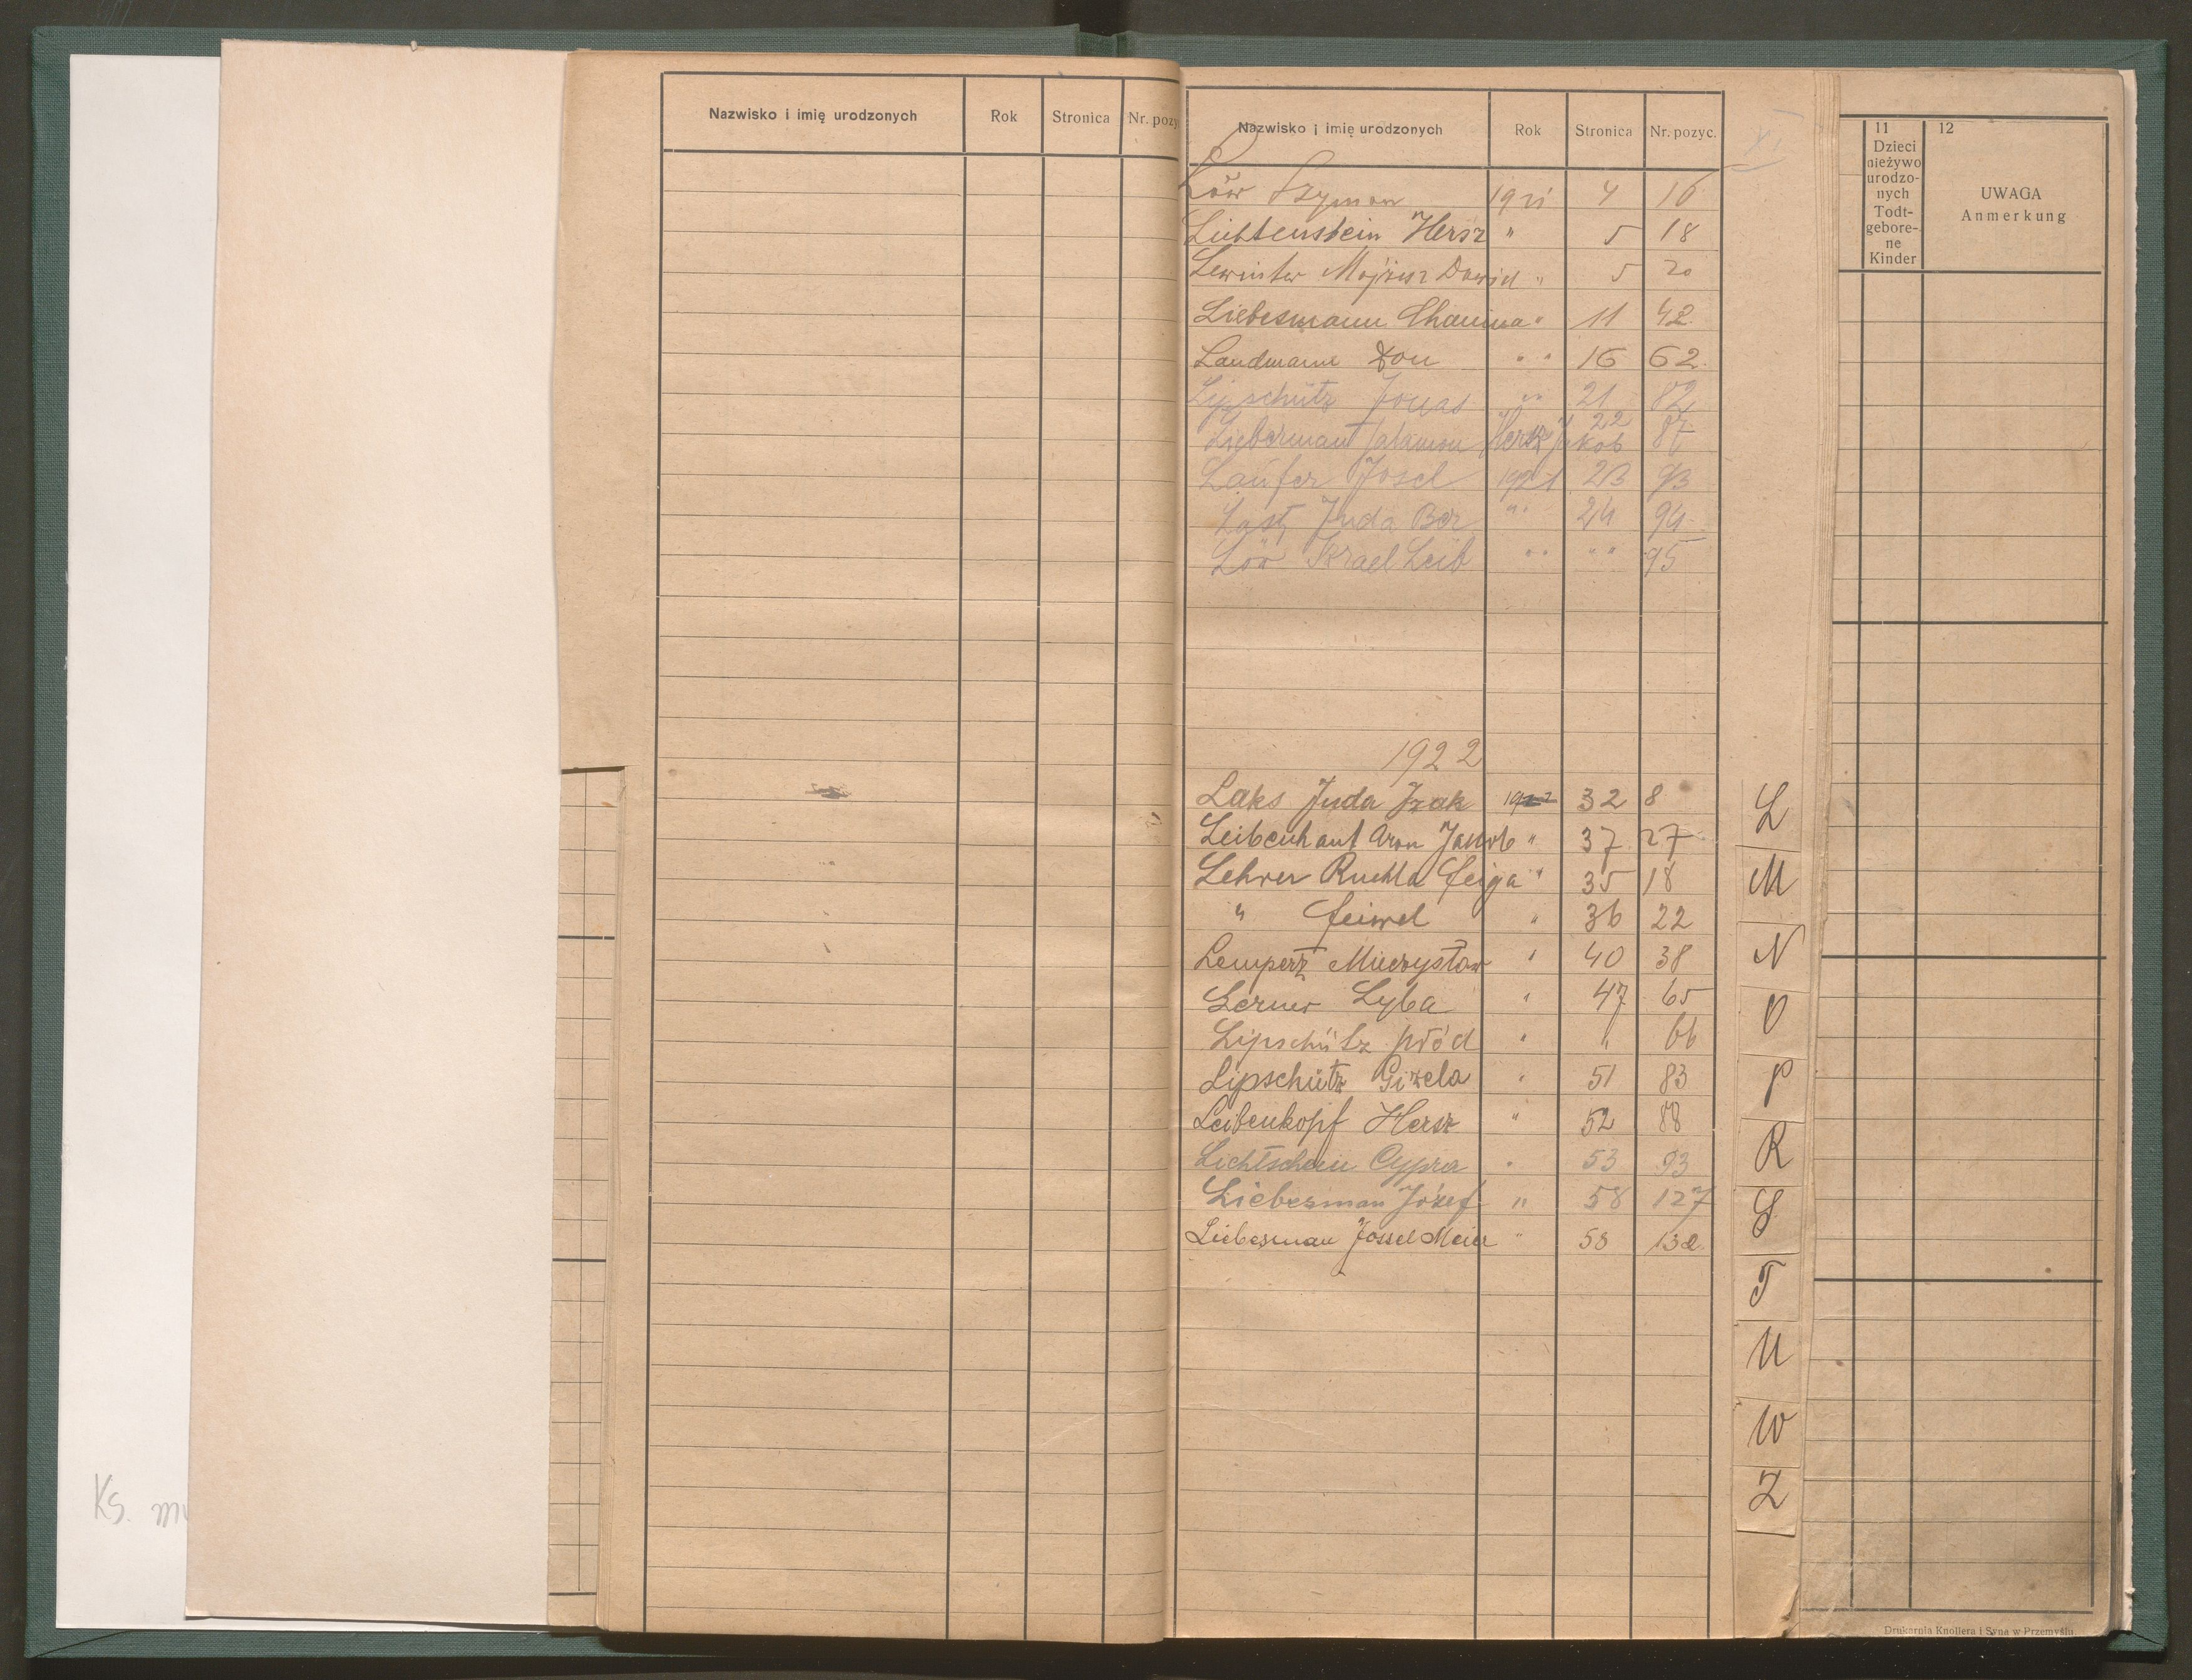 Nazwisko i imię urodzonych Rok Stronica Nr. pozy
Nazwisko i imię urodzonych Rok Stronica Nr. pozyc.
Löw Szymon 1921 4 16
Lichtenstein Hersz " 5 18
Lewinter Mojżesz Dawid " 5 20
Liebesmann Chanina " 11 42
Landmann Don " " 16 62
Lipschütz Jonas " " 21 82
Lieberman Salamon Hersz Jakob 22 87
Laufer Josel 1921 23 93
Last Juda Ber " " 24 94
Löw Israel Leib " " " " 95
1922
Laks Juda Izak 1922 32 8
Leibenhaut Aron Jakob " 37 27
Lehrer Ruchla Feiga " 35 18
" Feiwel " 36 22
Lempert Mieczysław " 40 38
Lerner Lyba " 47 65
Lipschütz " " 66
Lipschütz Gizela " 51 83
Leibenkopf Hersz " 52 88
Lichtschein Cypra " 53 93
Liebesman Józef " 58 127
Liebesman Jossel Meier " 58 132
L
M
N
O
P
R
S
T
U
W
Z
11
Dzieci
nieżywo
urodzo-
nych
Todt-
gebore-
ne
Kinder
12
UWAGA
Anmerkung
Ks.
Drukarnia Knollera i Syna w Przemyślu